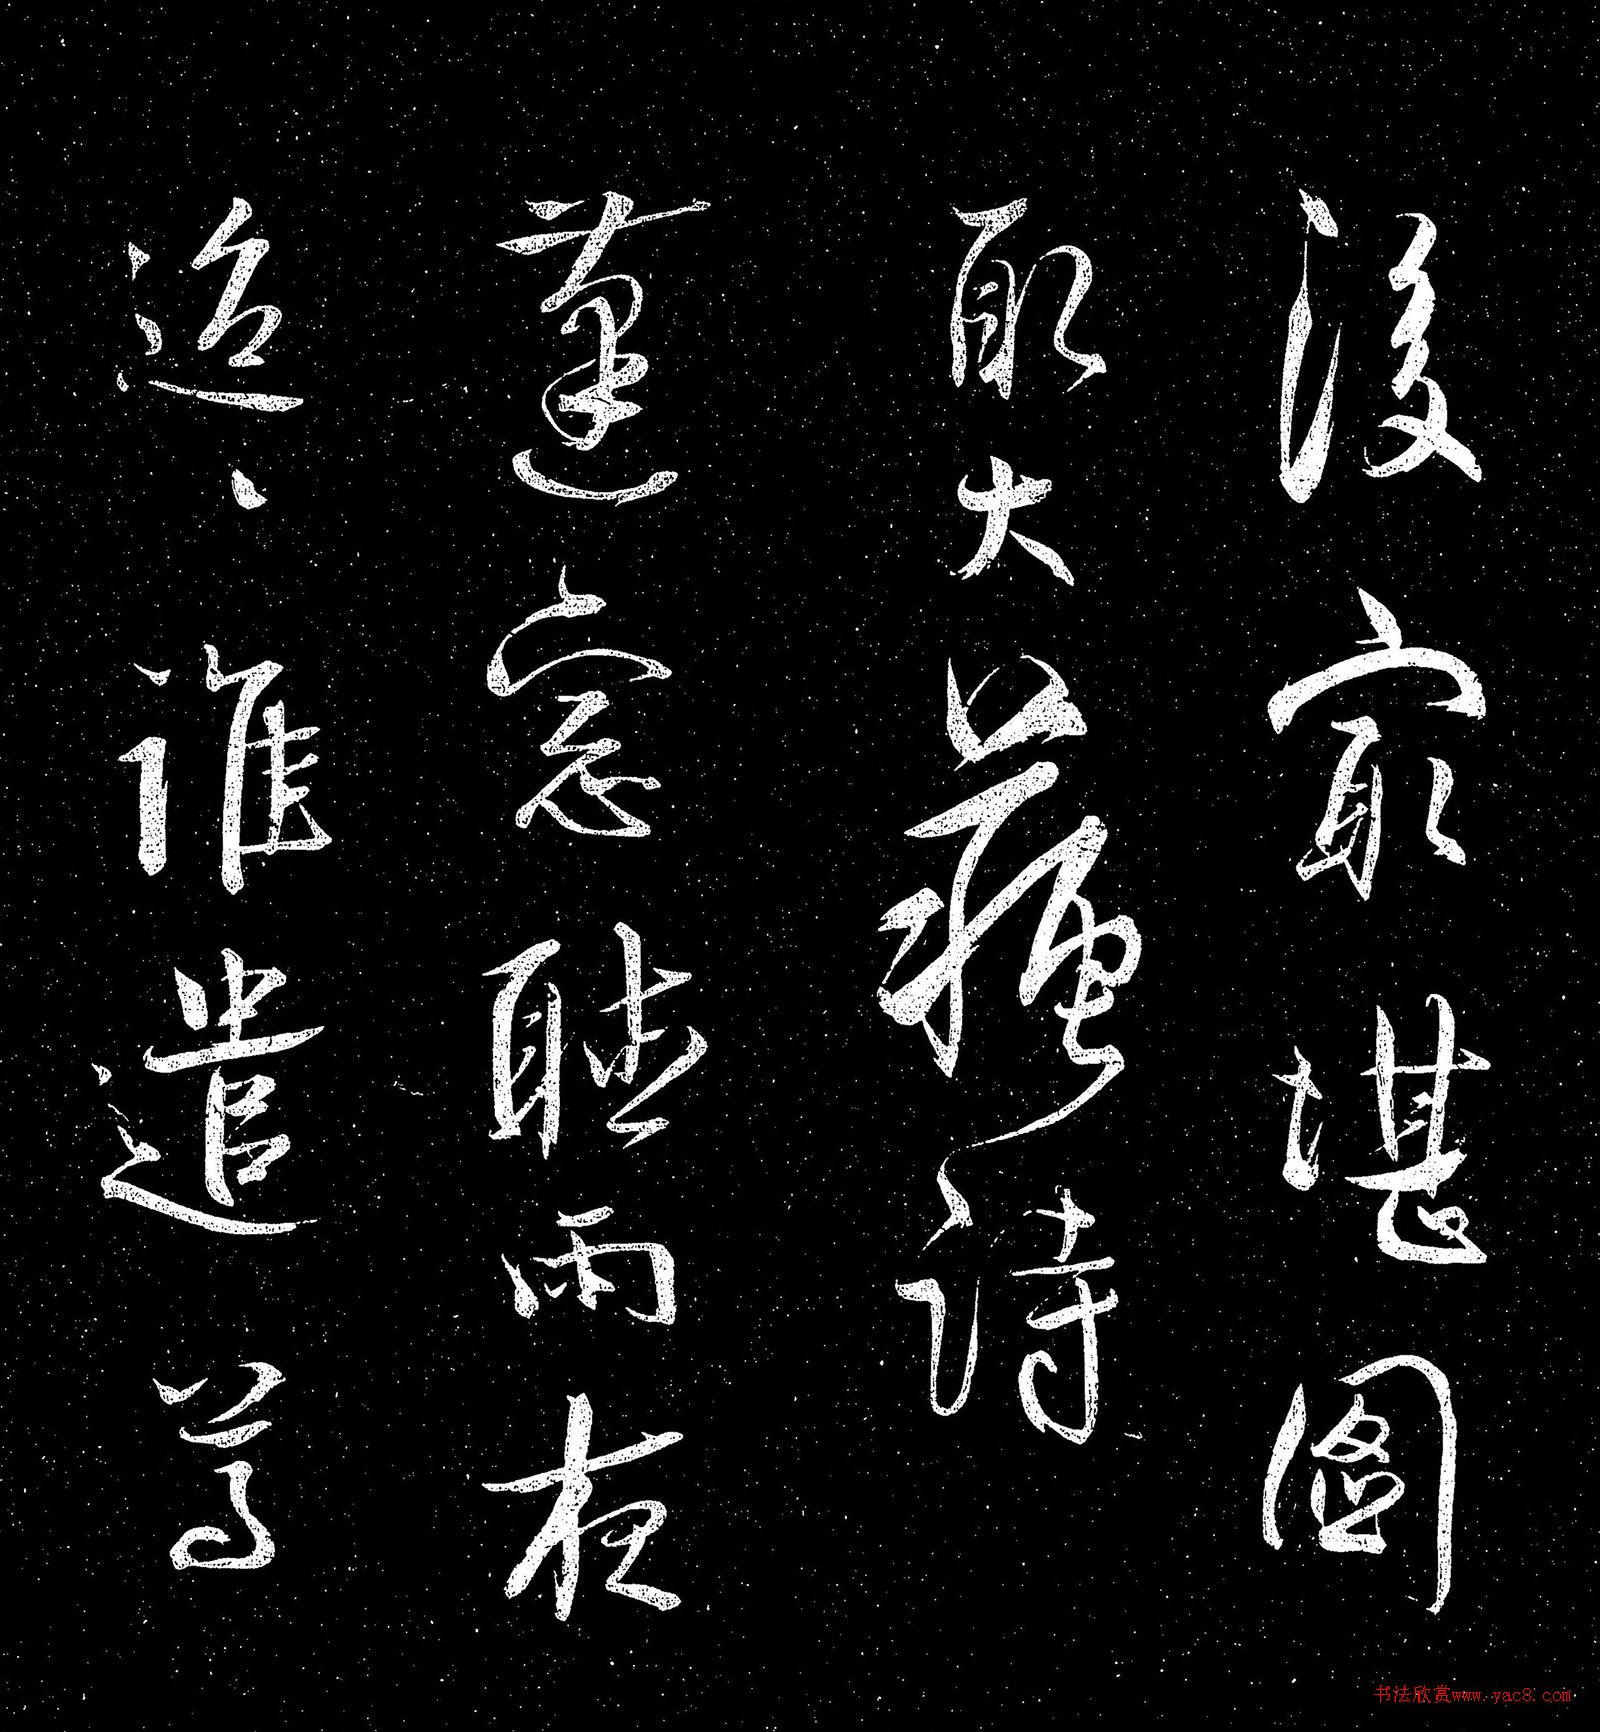 後最堪圖
取大蘇詩
蓬窓聽雨夜
迢〻誰遣尊
书法欣赏www.yac8.com